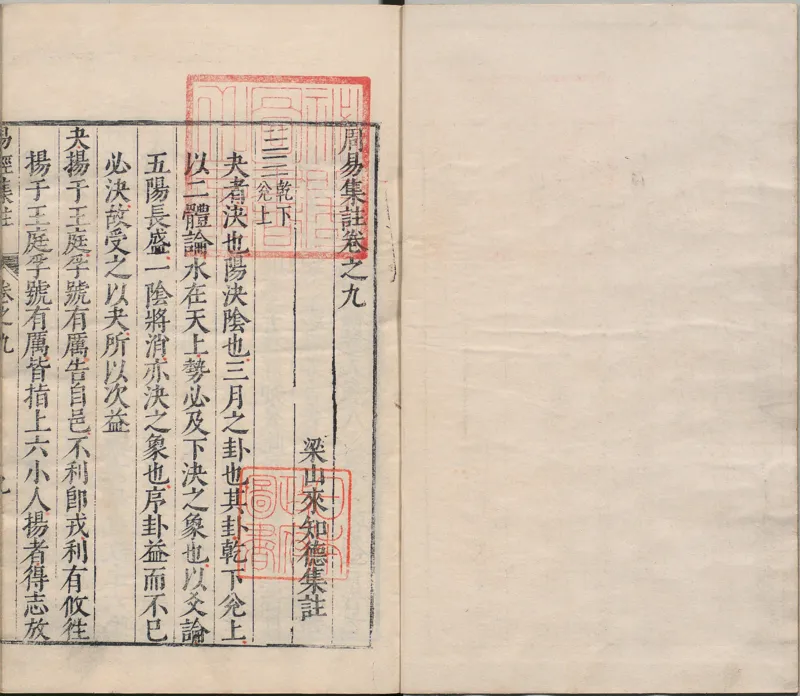 周易集註卷之九
梁山來知德集註
乾下
兌上
夬者決也陽決陰也三月之卦也其卦乾下兌上
以二體論水在天上勢必及下決之象也以爻論
五陽長盛一陰將消亦決之象也序卦益而不已
必決故受之以夬所以次益
夬揚于王庭孚號有厲告自邑不利卽戎利有攸往
揚于王庭孚號有厲皆指上六小人揚者得志放
易經集註
卷之九